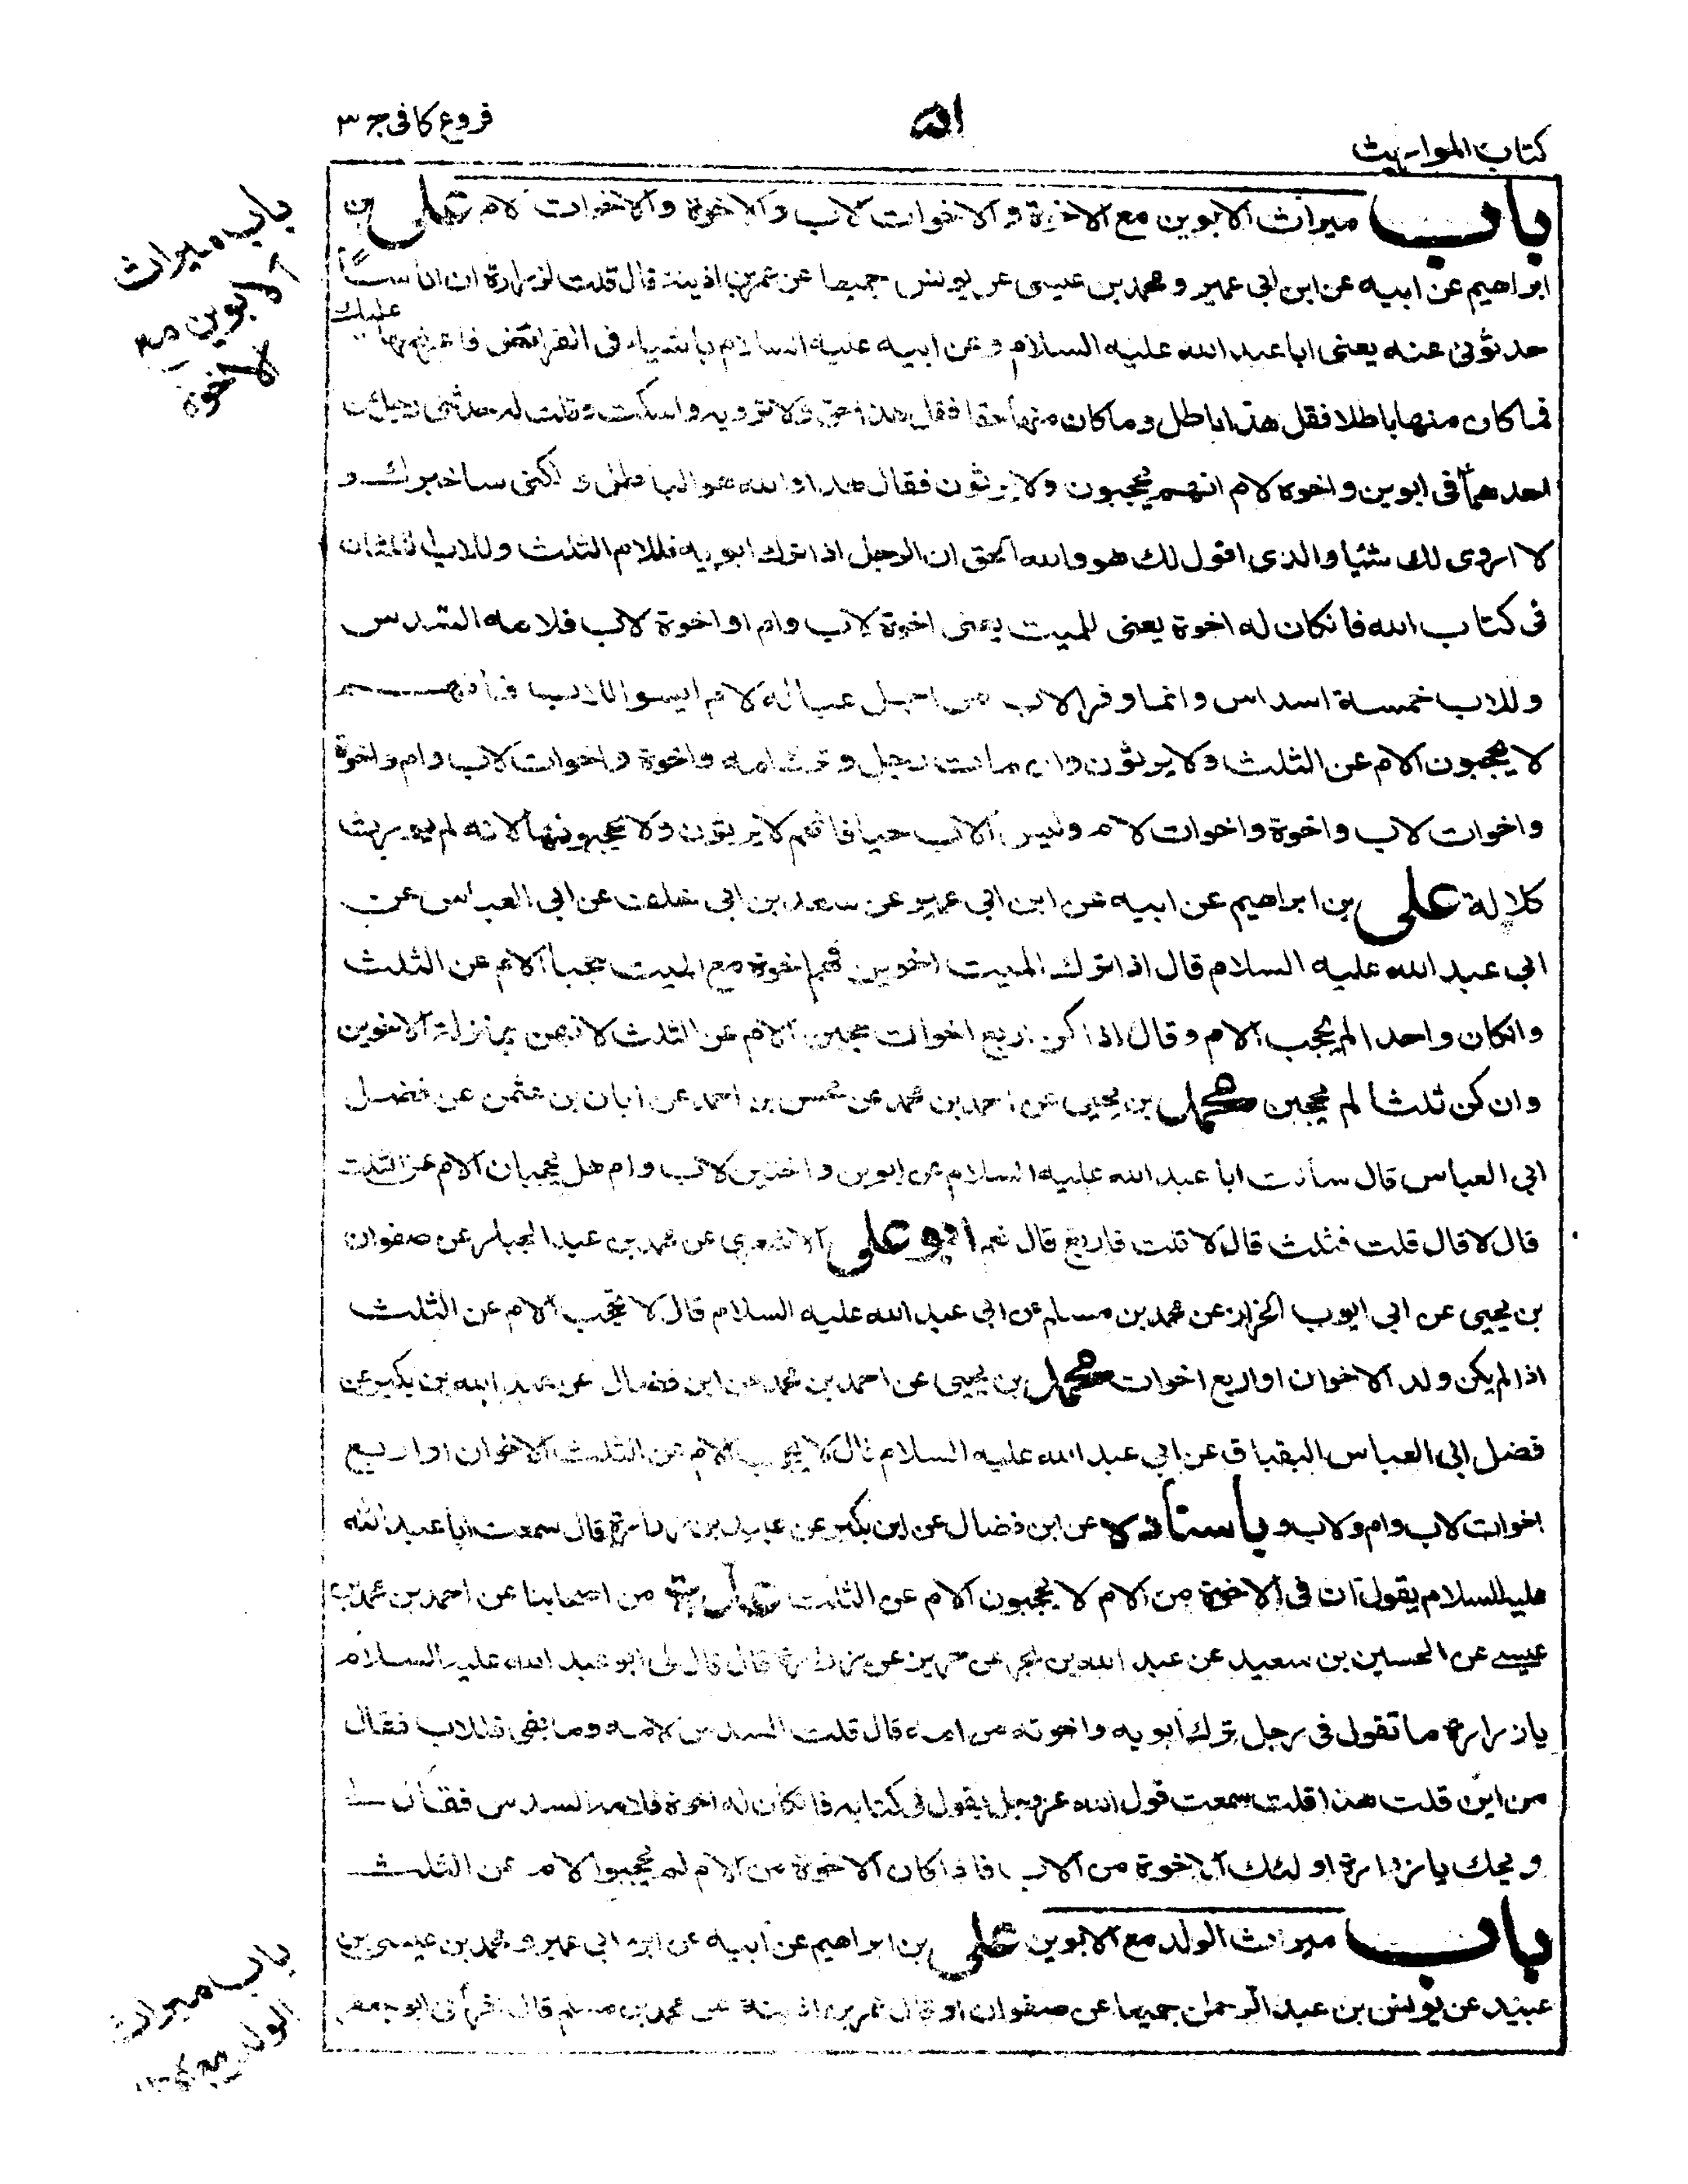 كتاب المواريث
٥١
فروع كافى ج ٣
باب ميراث الابوين مع الاخوة و الاخوات لاب والاخوة والاخوات لام على بن
ابراهيم عن ابيه عن ابن ابى عمير و محمد بن عيسى عن يونس جميعا عن عمر بن اذينة قال قلت لزرارة ان اناسا
حدثونى عنه يعنى ابا عبد الله عليه السلام وعن ابيه عليه السلام باشياء فى الفرائض فاعرضها عليك
فما كان منها باطلا فقل هذا باطل وما كان منها حقا فقل هذا حق ولا ترويه واسكت وقلت له حدثنى رجل عن
احدهما فى ابوين واخوة لام انهم يحجبون ولا يرثون فقال هذا والله هو الباطل و لكنى ساخبرك و
لا اروى لك شيئا والذى اقول لك هو والله الحق ان الرجل اذا ترك ابويه فللام الثلث وللاب الثلثان
فى كتاب الله فانكان له اخوة يعنى للميت يعنى اخوة لاب وام او اخوة لاب فلامه السدس
وللاب خمسة اسداس وانما وفر للاب من اجل عياله لام ليسوا للاب فانهم
لا يحجبون الام عن الثلث ولا يرثون وان مات رجل وترك امه واخوة واخوات لاب وام واخوة
واخوات لاب واخوة واخوات لام وليس الاب حيا فانهم لا يرثون ولا يحجبونها لانه لم يورث
كلالة على بن ابراهيم عن ابيه عن ابن ابى عمير عن سعد بن ابى خلف عن ابى العباس عن
ابى عبد الله عليه السلام قال اذا ترك الميت اخوين فهم اخوة مع الميت حجبا الام عن الثلث
وانكان واحدا لم يحجب الام وقال اذا كن اربع اخوات حجبن الام عن الثلث لانهن بمنزلة الاخوين
وان كن ثلثا لم يحجبن محمد بن يحيى عن احمد بن محمد عن محسن بن احمد عن ابان بن عثمن عن فضل
ابى العباس قال سألت ابا عبد الله عليه السلام عن ابوين واختين لاب وام هل يحجبان الام عن الثلث
قال لا قال قلت فثلث قال لا قلت فاربع قال نعم ابو على الاشعرى عن محمد بن عبد الجبار عن صفوان
بن يحيى عن ابى ايوب الخزاز عن محمد بن مسلم عن ابى عبد الله عليه السلام قال لا تحجب الام عن الثلث
اذا لم يكن ولد الا اخوان او اربع اخوات محمد بن يحيى عن احمد بن محمد عن ابن فضال عن عبد الله بن بكير عن
فضل ابى العباس البقباق عن ابى عبد الله عليه السلام قال لا يحجب الام عن الثلث الا اخوان او اربع
اخوات لاب وام ولاب و باسناده عن ابن فضال عن ابن بكير عن عبيد بن زرارة قال سمعت ابا عبد الله
عليه السلام يقول ان فى الاخوة من الام لا يحجبون الام عن الثلث عدة من اصحابنا عن احمد بن محمد بن
عيسى عن الحسين بن سعيد عن عبد الله بن بحر عن حريز عن زرارة قال قال لى ابو عبد الله عليه السلام
يا زرارة ما تقول فى رجل ترك ابويه واخوته من امه قال قلت السدس لامه وما بقى فللاب فقال
من اين قلت هذا قلت سمعت قول الله عزوجل يقول فى كتابه فانكان له اخوة فلامه السدس فقال لى
ويحك يا زرارة اولئك الاخوة من الاب فاذا كان الاخوة من الام لم يحجبوا الام عن الثلث
باب ميراث الولد مع الابوين على بن ابراهيم عن ابيه عن ابن ابى عمير و محمد بن عيسى بن
عبيد عن يونس بن عبد الرحمان جميعا عن صفوان او قال عمر بن اذينة عن محمد بن مسلم قال اقرأنى ابو جعفر
باب ميراث
الابوين مع
الاخوة
باب ميراث
الولد مع